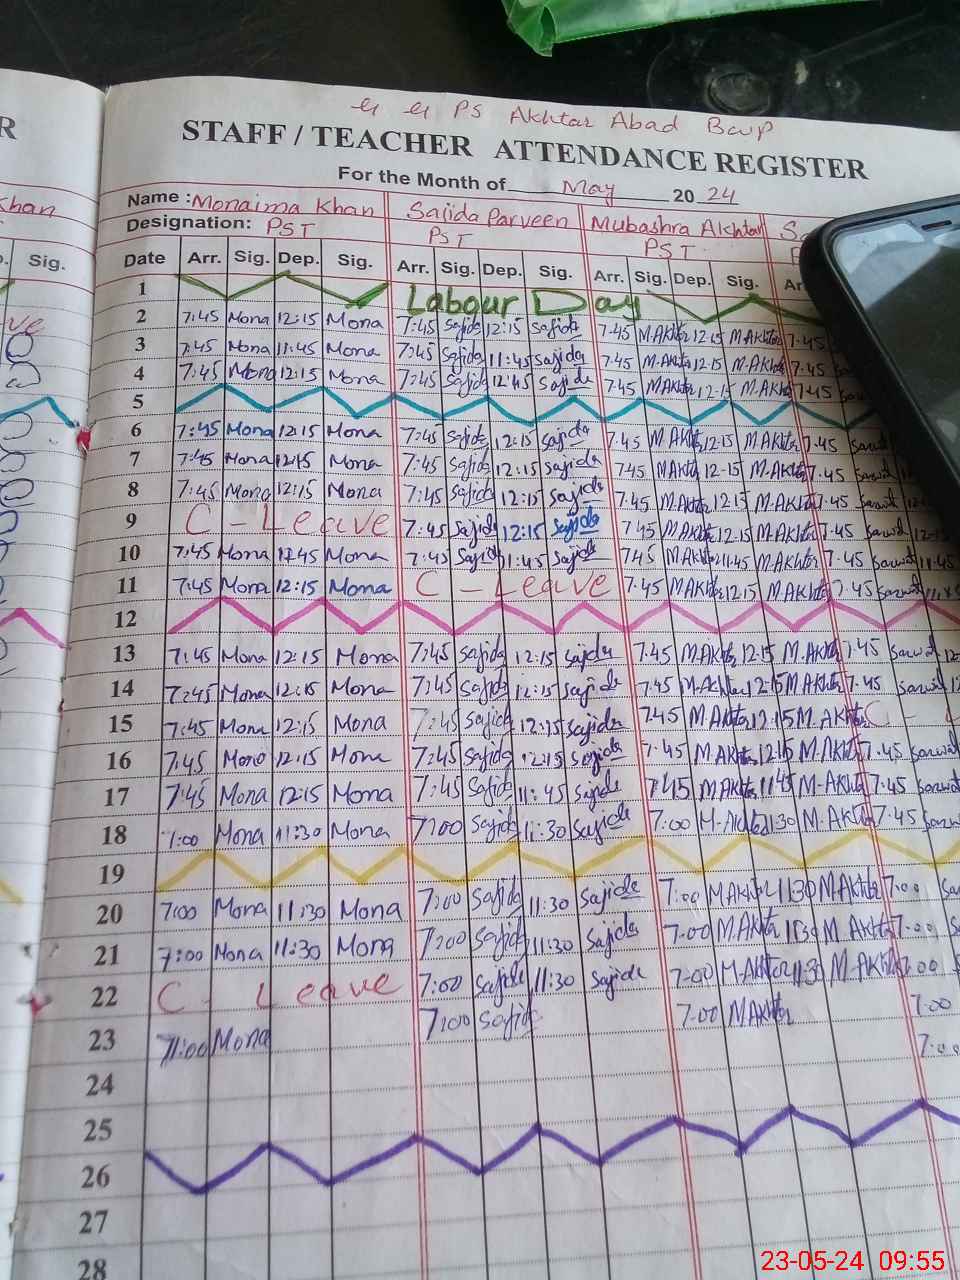 PS Akhtar Abad Bwp
STAFF / TEACHER ATTENDANCE REGISTER
For the Month of May 20 24
Name : Monaima Khan Sajida Parveen Mubashra Akhtar
Designation: PST PST PST
Date Arr. Sig. Dep. Sig. Arr. Sig. Dep. Sig. Arr. Sig. Dep. Sig. Arr
1 Labour Day
2 7:45 Mona 12:15 Mona 7:45 Sajida 12:15 Sajida 7-45 M.Akhtar 12-15 M.Akhtar 7-45
3 7:45 Mona 11:45 Mona 7:45 Sajida 11:45 Sajida 7-45 M.Akhtar 12-15 M.Akhtar 7-45
4 7:45 Mona 12:15 Mona 7:45 Sajida 12:45 Sajida 7-45 M.Akhtar 12-15 M.Akhtar 7-45
5
6 7:45 Mona 12:15 Mona 7:45 Sajida 12:15 Sajida 7-45 M.Akhtar 12-15 M.Akhtar 7-45
7 7:45 Mona 12:15 Mona 7:45 Sajida 12:15 Sajida 7-45 M.Akhtar 12-15 M.Akhtar 7-45
8 7:45 Mona 12:15 Mona 7:45 Sajida 12:15 Sajida 7-45 M.Akhtar 12-15 M.Akhtar 7-45
9 C - Leave 7:45 Sajida 12:15 Sajida 7-45 M.Akhtar 12-15 M.Akhtar 7-45
10 7:45 Mona 11:45 Mona 7:45 Sajida 11:45 Sajida 7-45 M.Akhtar 11-45 M.Akhtar 7-45
11 7:45 Mona 12:15 Mona C - Leave 7-45 M.Akhtar 12-15 M.Akhtar 7-45
12
13 7:45 Mona 12:15 Mona 7:45 Sajida 12:15 Sajida 7-45 M.Akhtar 12-15 M.Akhtar 7-45
14 7:45 Mona 12:15 Mona 7:45 Sajida 12:15 Sajida 7-45 M.Akhtar 12-15 M.Akhtar 7-45
15 7:45 Mona 12:15 Mona 7:45 Sajida 12:15 Sajida 7-45 M.Akhtar 12-15 M.Akhtar C - L
16 7:45 Mona 12:15 Mona 7:45 Sajida 12:15 Sajida 7-45 M.Akhtar 12-15 M.Akhtar 7-45
17 7:45 Mona 12:15 Mona 7:45 Sajida 11:45 Sajida 7-45 M.Akhtar 11-45 M.Akhtar 7-45
18 7:00 Mona 11:30 Mona 7:00 Sajida 11:30 Sajida 7:00 M.Akhtar 11-30 M.Akhtar 7-45
19
20 7:00 Mona 11:30 Mona 7:00 Sajida 11:30 Sajida 7:00 M.Akhtar 11-30 M.Akhtar 7:00
21 7:00 Mona 11:30 Mona 7:00 Sajida 11:30 Sajida 7-00 M.Akhtar 11-30 M.Akhtar 7-00
22 C - Leave 7:00 Sajida 11:30 Sajida 7-00 M.Akhtar 11-30 M.Akhtar 7:00
23 7:00 Mona 7:00 Sajida 7-00 M.Akhtar 7:00
24
25
26
27
28
23-05-24 09:55